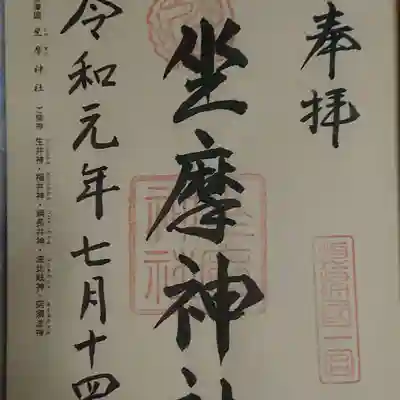 奉拝
坐摩神社
令和元年七月十四
坐摩神社 ご祭神 生井神・福井神・綱長井神・波比岐神・阿須波神